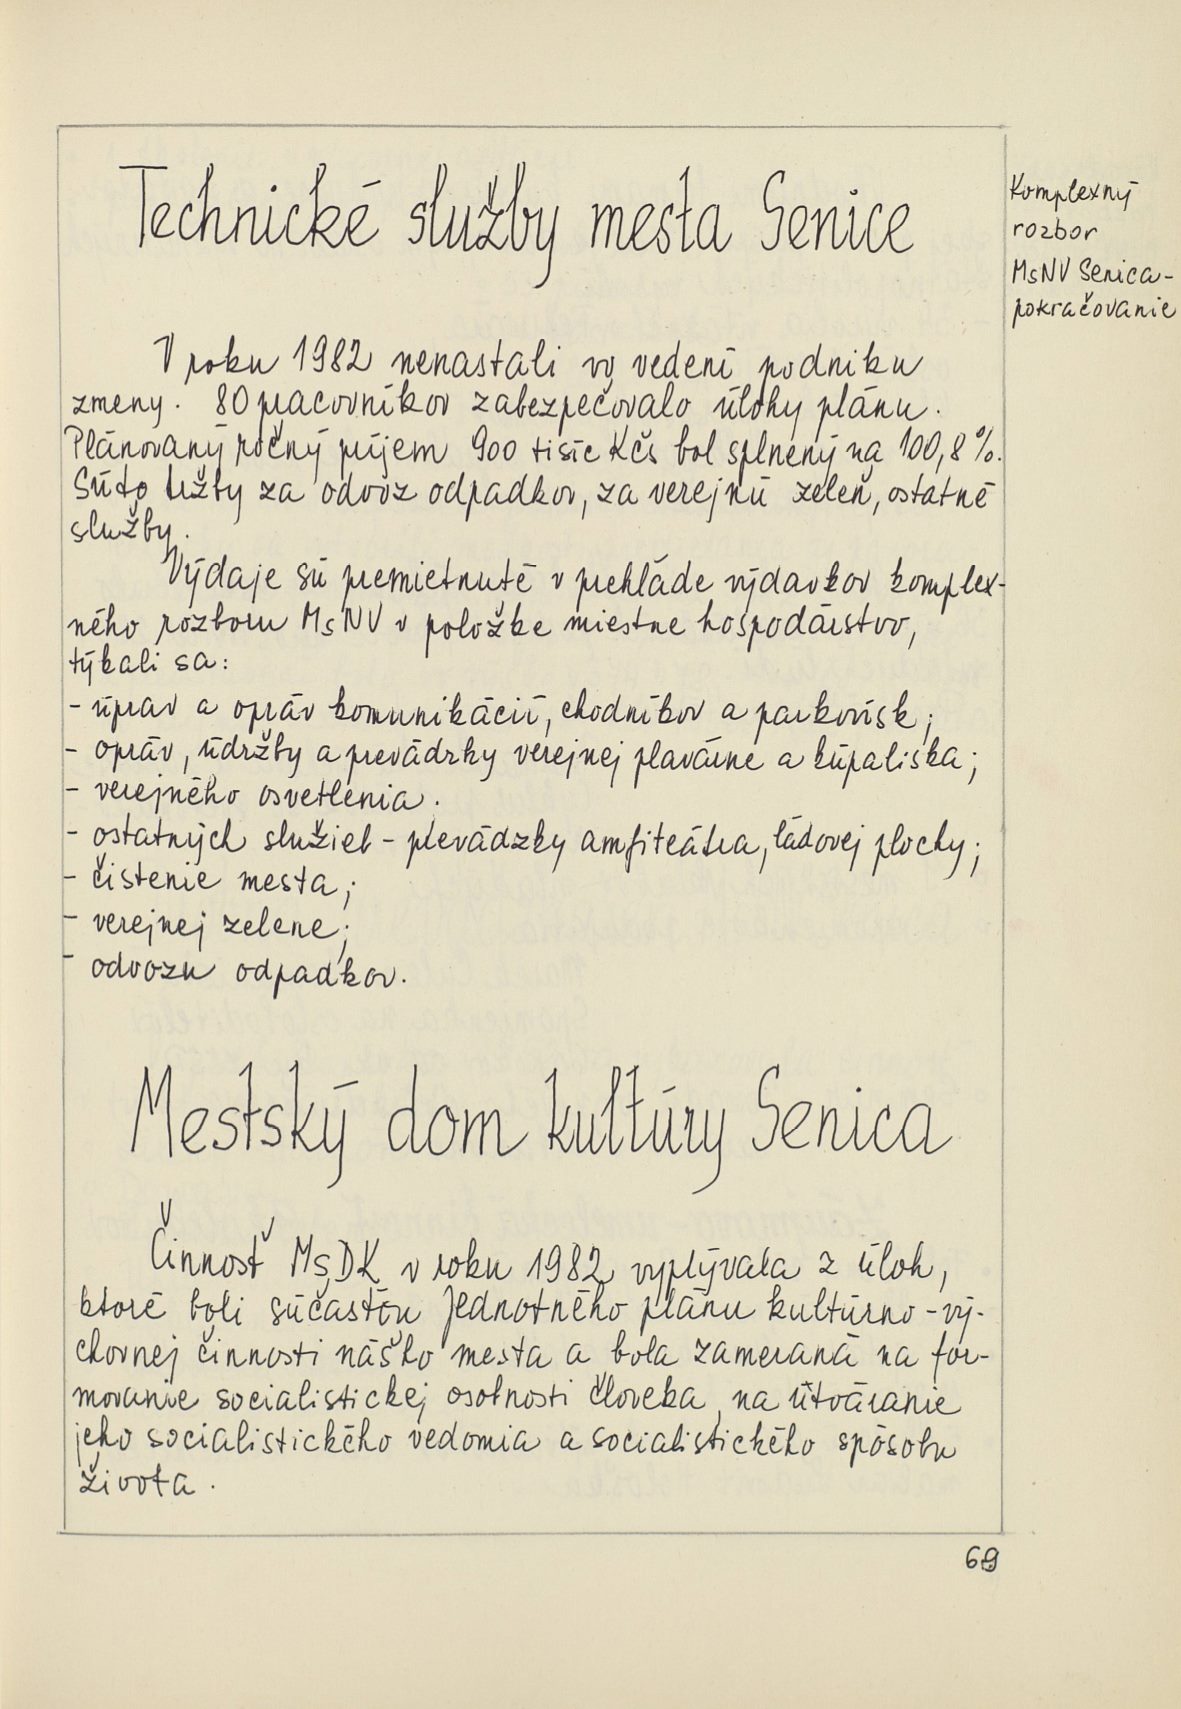 Technické služby mesta Senice
Komplexný
rozbor
MsNV Senica-
pokračovanie
V roku 1982 nenastali vo vedení podniku
zmeny. 80 pracovníkov zabezpečovalo úlohy plánu.
Plánovaný ročný príjem 900 tisíc Kčs bol splnený na 100,8%.
Sú to tržby za odvoz odpadkov, za verejnú zeleň, ostatné
služby.
Výdaje sú premietnuté v prehľade výdavkov komplex-
ného rozboru MsNV v položke miestne hospodárstvo,
týkali sa:
- úprav a opráv komunikácií, chodníkov a parkovísk;
- opráv, údržby a prevádzky verejnej plavárne a kúpaliska;
- verejného osvetlenia;
- ostatných služieb - prevádzky amfiteátra, ľadovej plochy;
- čistenie mesta;
- verejnej zelene;
- odvozu odpadkov.
Mestský dom kultúry Senica
Činnosť MsDK v roku 1982 vyplývala z úloh,
ktoré boli súčasťou Jednotného plánu kultúrno-vý-
chovnej činnosti nášho mesta a bola zameraná na for-
movanie socialistickej osobnosti človeka, na útváranie
jeho socialistického vedomia a socialistického spôsobu
života.
69